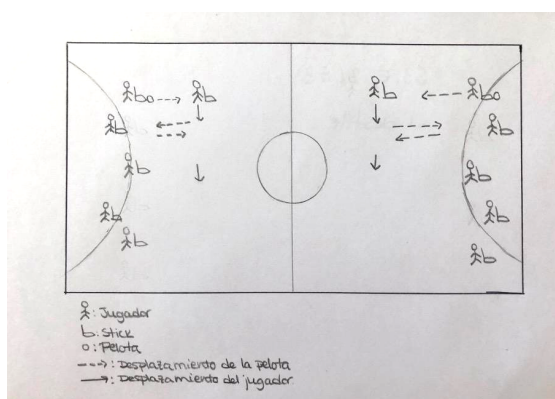 : Jugador
: Stick
: Pelota
: Desplazamiento de la pelota
: Desplazamiento del jugador